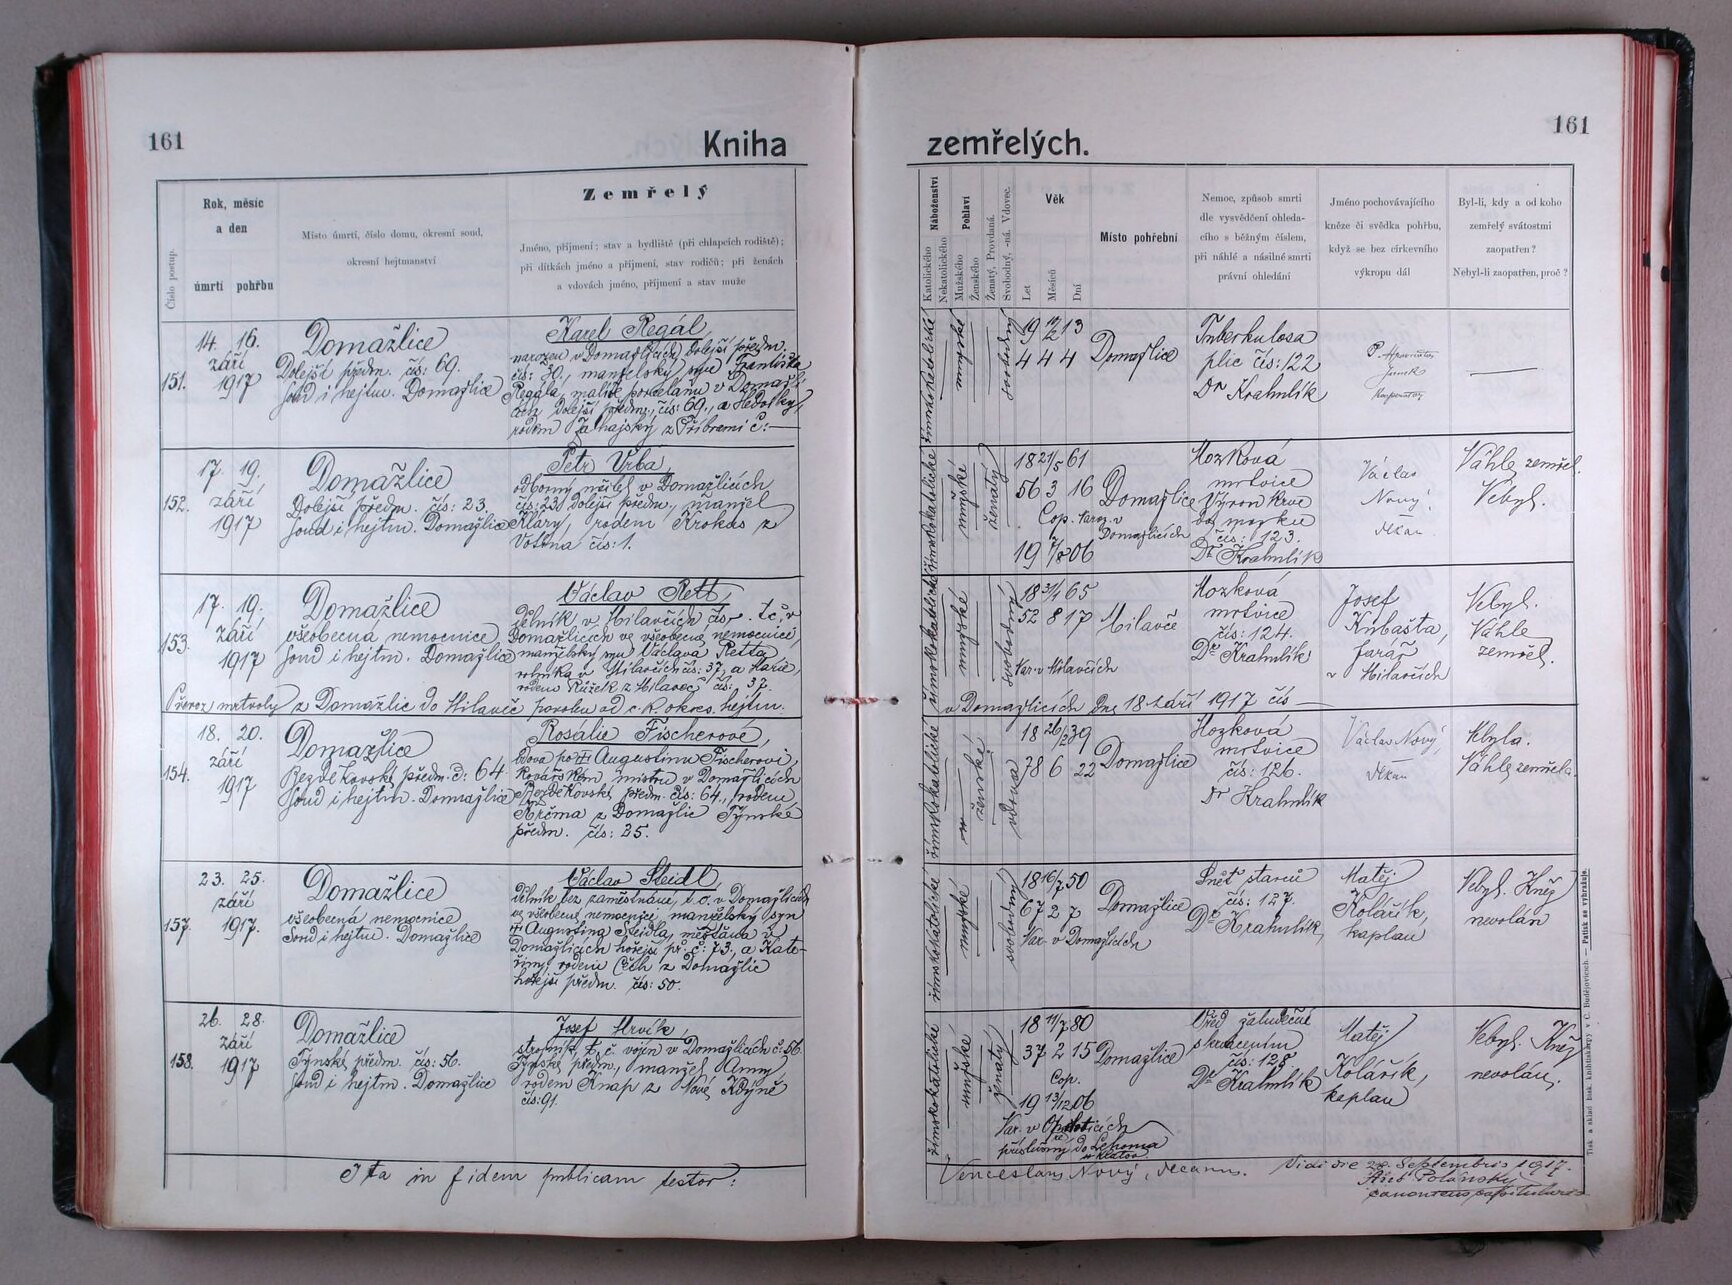 161
Kniha
zemřelých.
161
Číslo postup.
Rok, měsíc
a den
úmrtí pohřbu
Místo úmrtí, číslo domu, okresní soud,
okresní hejtmanství
Zemřelý
Jméno, příjmení; stav a bydliště (při chlapcích rodiště);
při dítkách jméno a příjmení, stav rodičů; při ženách
a vdovách jméno, příjmení a stav muže
Náboženství
Katolického
Nekatolického
Pohlaví
Mužského
Ženského
Ženatý, Provdaná.
Svobodný, -ná. Vdovec.
Věk
Let
Měsíců
Dní
Místo pohřební
Nemoc, způsob smrti
dle vysvědčení ohleda-
cího s běžným číslem,
při náhlé a násilné smrti
právní ohledání
Jméno pochovávajícího
kněze či svědka pohřbu,
když se bez církevního
výkropu dál
Byl-li, kdy a od koho
zemřelý svátostmi
zaopatřen?
Nebyl-li zaopatřen, proč?
151.
14. 16.
září
1917
Domažlice
Dolejší předm. čís: 69.
soud i hejtm. Domažlice
Karel Regál,
narozen v Domažlicích, Dolejší předm.
čís: 30., manželský syn Františka
Regála, malíře porcelánu v Domažli-
cích Dolejší předm., čís: 69., a Hedviky,
rodem z Příbrami č:
římskokatolické
mužské
svobodný
19 12/2 13
4 4 4
Domažlice
Tuberkulosa
plic čís: 122
Dr Krahulík
P.
152.
17. 19.
září
1917
Domažlice
Dolejší předm. čís: 23.
soud i hejtm. Domažlice
Petr Vrba,
odborný učitel v Domažlicích
čís: 23 Dolejší předm., manžel
Kláry, rodem Krokus z
čís: 1.
římskokatolické
mužské
ženatý
18 21/5 61
56 3 16
Cop. Nar. v
Domažlicích
19 7/8 06
Domažlice
Mozková
mrtvice
Výron krve
do mozku
čís: 123.
Dr Krahulík
Václav
Nový,
děkan
Náhle zemřel.
Nebyl.
153.
17. 19.
září
1917
Domažlice
všeobecná nemocnice,
soud i hejtm. Domažlice
Václav Rett,
dělník v Milavčích čís. t. č. v
Domažlicích ve všeobecné nemocnici,
manželský syn Václava Retta
rolníka v Milavčích čís: 37, a Marie,
rodem Růžek z Milavec čís: 37.
Převoz mrtvoly z Domažlic do Milavče povolen od c. k. okres. hejtm.
římskokatolické
mužské
svobodný
18 31/1 65
52 8 17
Nar. v Milavčích
Milavče
Mozková
mrtvice
čís: 124.
Dr Krahulík
Josef
Kubašta,
farář
v Milavčích
Nebyl.
Náhle
zemřel.
v Domažlicích dne 18 září 1917 čís
154.
18. 20.
září
1917
Domažlice
Bezděkovské předm. č: 64.
soud i hejtm. Domažlice
Rosalie Fischerové,
vdova po Augustinu Fischerovi,
kovářském mistru v Domažlicích
Bezděkovské předm. čís: 64., rodem
Krčma z Domažlic Týnské
předm. čís: 25.
římskokatolické
ženské
vdova
18 26/2 39
78 6 22
Domažlice
Mozková
mrtvice
čís: 126.
Dr Krahulík
Václav Nový,
děkan
Nebyla.
Náhle zemřela.
157.
23. 25.
září
1917.
Domažlice
všeobecná nemocnice
soud i hejtm. Domažlice
Václav Steidl,
dělník bez zaměstnání, t. č. v Domažlicích
ve všeobecné nemocnici, manželský syn
Augustina Steidla, měšťana v
Domažlicích hořejší př. č: 73., a Kate-
řiny, rodem Čech z Domažlic
hořejší předm. čís: 50.
římskokatolické
mužské
svobodný
18 16/7 50
67 2 7
Nar. v Domažlicích
Domažlice
Sněť starců
čís: 127.
Dr Krahulík,
Matěj
Kolářík,
kaplan
Nebyl. Kněz
nevolán
158.
26. 28.
září
1917
Domažlice
Týnské předm. čís: 56.
soud i hejtm. Domažlice
Josef Mrvík,
strojník, t. č. vojín v Domažlicích č: 56.
Týnské předm., manžel Anny,
rodem Knap z Nové Kdýně
čís: 91.
římskokatolické
mužské
ženatý
18 11/7 80
37 2 15
Cop.
19 13/12 06
Nar. v
příslušný do
Domažlice
čís: 128
Dr Krahulík
Matěj
Kolářík,
kaplan
Nebyl. Kněz
nevolán.
Ita in fidem publicam testor:
Venceslaus Nový, decanus.
Vidi die 28. Septembris 1917.
canonicus capitularis
Tisk a sklad bisk. knihtiskárny v Č. Budějovicích. — Patisk se vyhražuje.